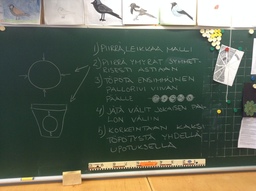 1) PIIRRÄ, LEIKKAA MALLI
2) PIIRRÄ YMPYRÄT SYMMET-
RISESTI ASTIAAN
3) TÖPÖTÄ ENSIMMÄINEN
PALLORIVI VIIVAN
PÄÄLLE
4) JÄTÄ VÄLIT JOKAISEN PAL-
LON VÄLIIN
5) KORKEINTAAN KAKSI
TÖPÖTYSTÄ YHDELLÄ
UPOTUKSELLA